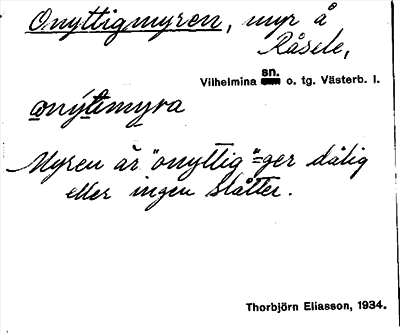 Onyttigmyren, myr å
Råsele,
sn.
Vilhelmina o. tg. Västerb. l.
onýttmyra
Myren är "onyttig" = ger dålig
eller ingen slåtter.
Thorbjörn Eliasson, 1934.